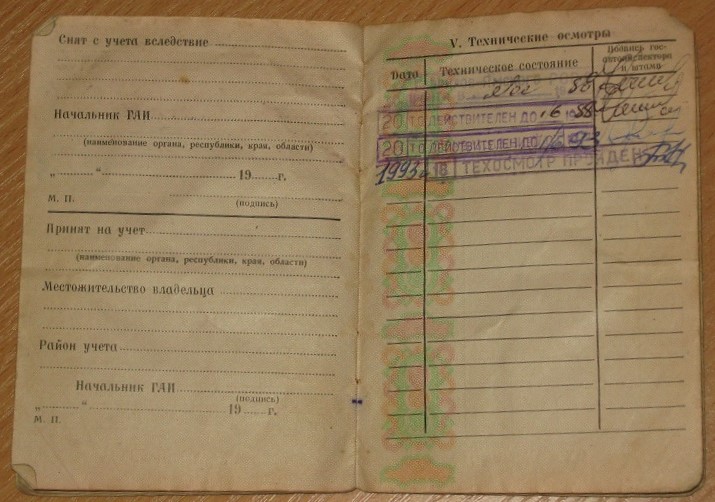 Снят с учета вследствие
Начальник ГАИ
(наименование органа, республики, края, области)
„ “ 19 г.
М. П.
(подпись)
Принят на учет
(наименование органа, республики, края, области)
Местожительство владельца
Район учета
Начальник ГАИ
(подпись)
„ “ 19 г.
М. П.
V. Технические осмотры
Дата
Техническое состояние
Подпись гос-
автоинспектора
и штамп
20 ТО ДЕЙСТВИТЕЛЕН ДО 16
20 ТО ДЕЙСТВИТЕЛЕН ДО
1993 18 ТЕХОСМОТР ПРОЙДЕН